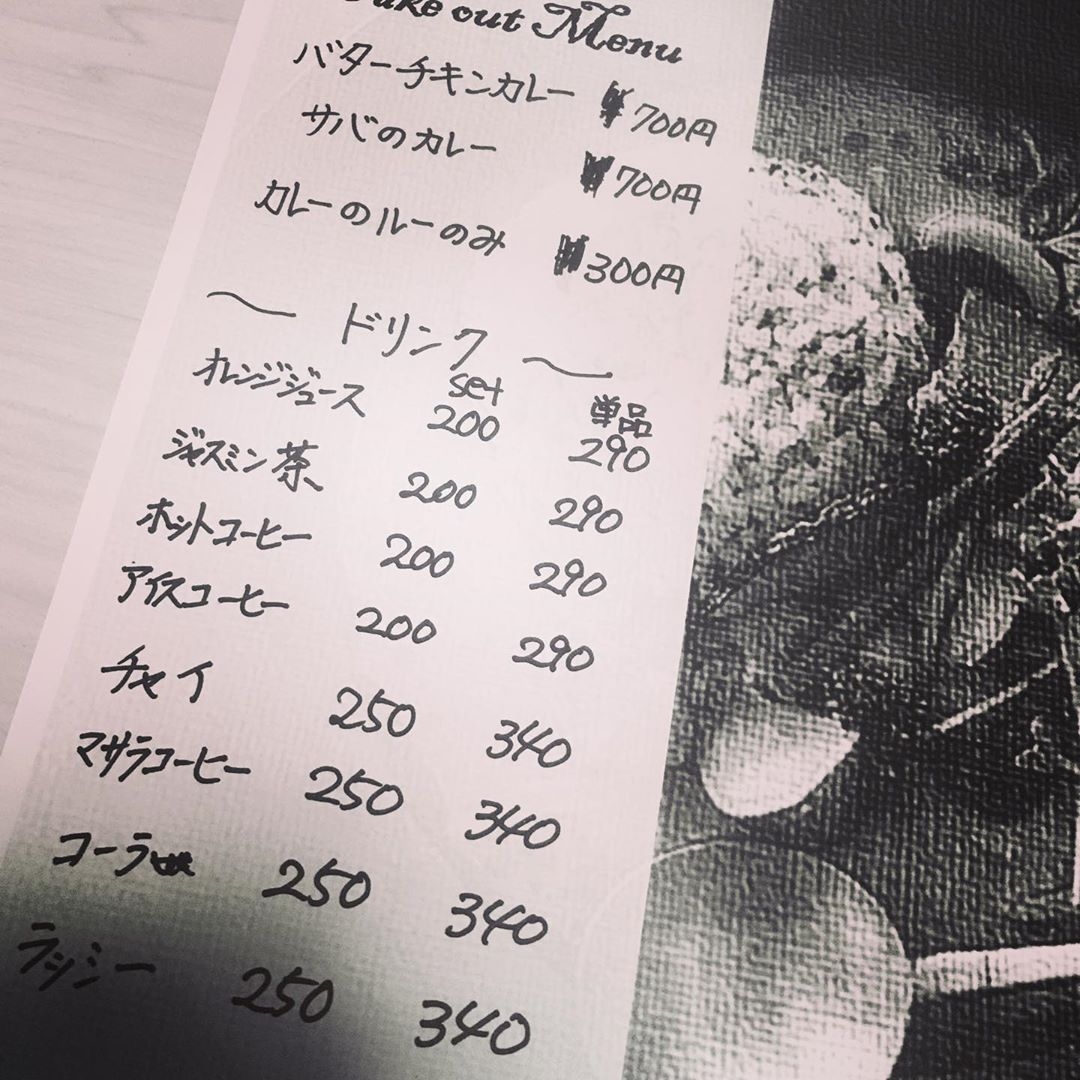 Take out Menu
バターチキンカレー ¥700円
サバのカレー ¥700円
カレーのルーのみ ¥300円
〜 ドリンク 〜
set 単品
オレンジジュース 200 290
ジャスミン茶 200 290
ホットコーヒー 200 290
アイスコーヒー 200 290
チャイ 250 340
マサラコーヒー 250 340
コーラ 250 340
ラッシー 250 340